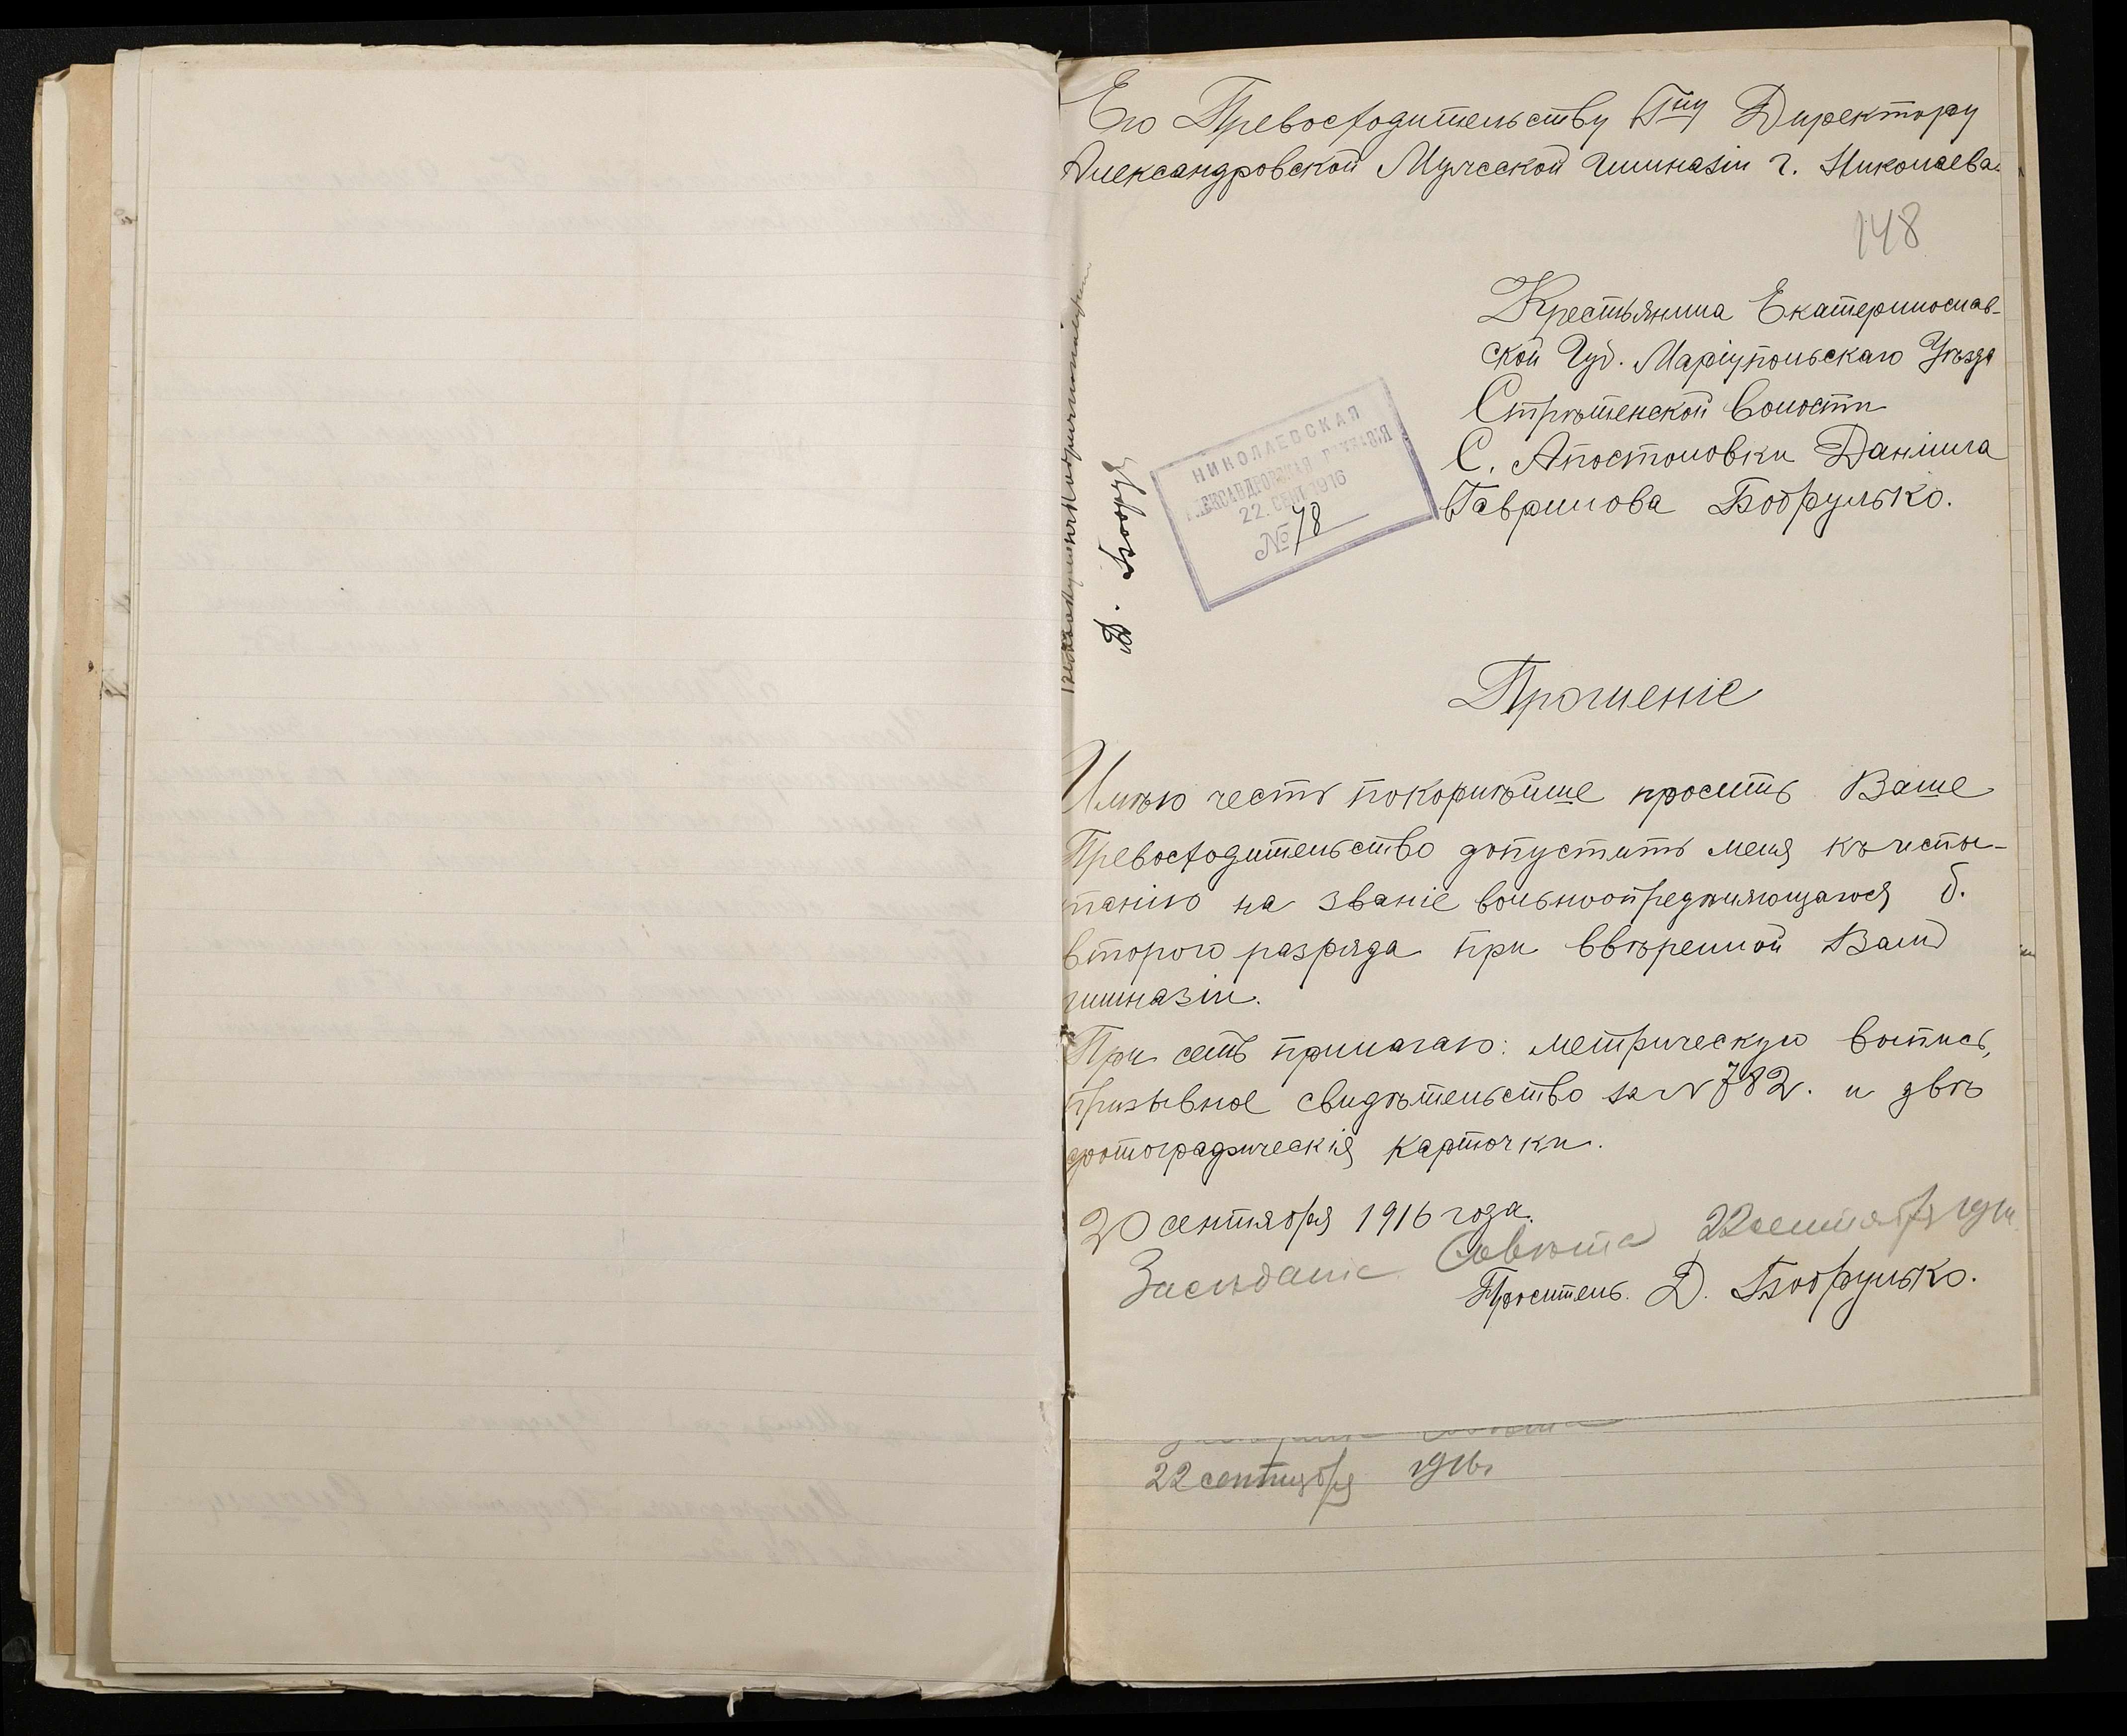 Его Превосходительству Гну Директору
Александровской Мужской гимназіи г. Николаева.
148
Крестьянина Екатеринослав-
ской Губ. Маріупольскаго Уѣзда
Стрѣтенской Волости
С. Апостоловки Даніила
Гаврилова Бобрулько.
НИКОЛАЕВСКАЯ
АЛЕКСАНДРОВСКАЯ ГИМНАЗІЯ
22. СЕН. 1916
№ 78
Прошеніе
Имѣю честь покорнѣйше просить Ваше
Превосходительство допустить меня къ испы-
танію на званіе вольноопредѣляющагося б.
второго разряда при ввѣренной Вамъ
гимназіи.
При семъ прилагаю: метрическую выпись,
призывное свидѣтельство за № 782. и двѣ
фотографическія карточки.
20 сентября 1916 года.
Засѣданіе Совѣта 22 сентября 1916
Проситель. Д. Бобрулько.
22 сентября 1916 г.